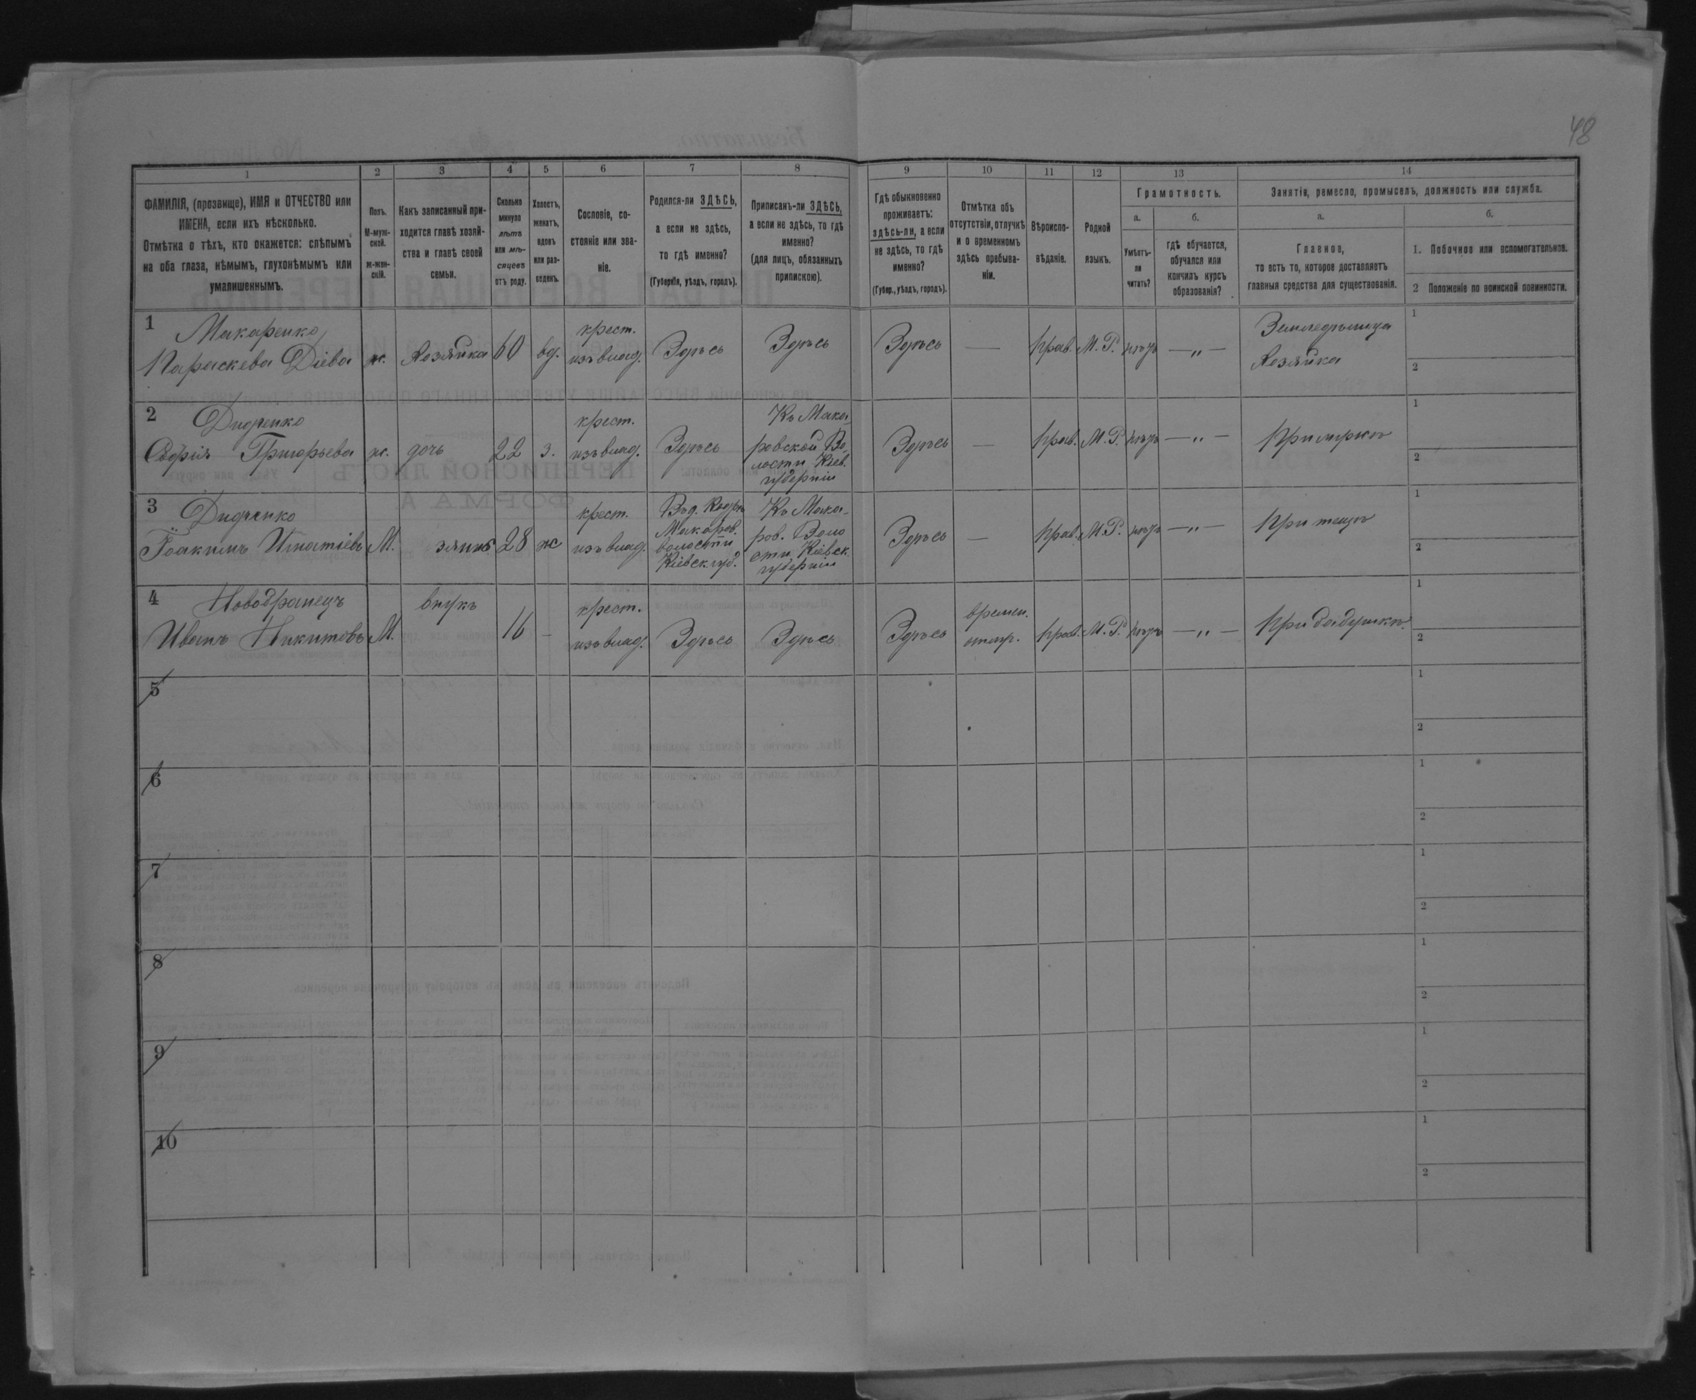 48
1 2 3 4 5 6 7 8 9 10 11 12 13 14
ФАМИЛІЯ, (прозвище), ИМЯ и ОТЧЕСТВО или
ИМЕНА, если ихъ нѣсколько.
Отмѣтка о тѣхъ, кто окажется: слѣпымъ
на оба глаза, нѣмымъ, глухонѣмымъ или
умалишеннымъ.
Полъ.
М-муж-
ской.
ж-жен-
скій.
Какъ записанный при-
ходится главѣ хозяй-
ства и главѣ своей
семьи.
Сколько
минуло
лѣтъ
или мѣ-
сяцевъ
отъ роду.
Холостъ,
женатъ,
вдовъ
или раз-
веденъ.
Сословіе, со-
стояніе или зва-
ніе.
Родился-ли ЗДѢСЬ,
а если не здѣсь,
то гдѣ именно?
(Губернія, уѣздъ, городъ).
Приписанъ-ли ЗДѢСЬ,
а если не здѣсь, то гдѣ
именно?
(для лицъ, обязанныхъ
припискою).
Гдѣ обыкновенно
проживаетъ:
здѣсь-ли, а если
не здѣсь, то гдѣ
именно?
(Губер., уѣздъ, городъ).
Отмѣтка объ
отсутствіи, отлучкѣ
и о временномъ
здѣсь пребыва-
ніи.
Вѣроиспо-
вѣданіе.
Родной
языкъ.
Грамотность.
а.
Умѣетъ-
ли
читать?
б.
гдѣ обучается,
обучался или
кончилъ курсъ
образованія?
Занятія, ремесло, промыселъ, должность или служба.
а.
Главное,
то есть то, которое доставляетъ
главныя средства для существованія.
б.
1. Побочное или вспомогательное.
2 Положеніе по воинской повинности.
1 Макаренко
Параскева Діева ж. Хозяйка 60 вд. крест. изъ влад. Здѣсь Здѣсь Здѣсь — прав. М. Р. нѣтъ — „ — Земледѣлица Хозяйка 1 2
2 Дидченко
Григорьева ж. дочь 22 з. крест. изъ влад. Здѣсь Къ Мака-
ровской Во-
лости Кіев.
губерніи Здѣсь — прав. М. Р. нѣтъ — „ — При мужѣ 1 2
3 Дидченко
Іоакимъ Игнатіевъ М. зять 28 ж крест. изъ влад.
Макаров.
волости
Кіевск. губ. Къ Мака-
ров. Воло
сти Кіевск.
губерніи Здѣсь — прав. М. Р. нѣтъ — „ — При тещѣ 1 2
4 Новодранецъ
Иванъ Никитовъ М. внукъ 16 - крест. изъ влад. Здѣсь Здѣсь Здѣсь времен. прав. М. Р. нѣтъ — „ — При дедушкѣ. 1 2
5 1 2
6 1 2
7 1 2
8 1 2
9 1 2
10 1 2